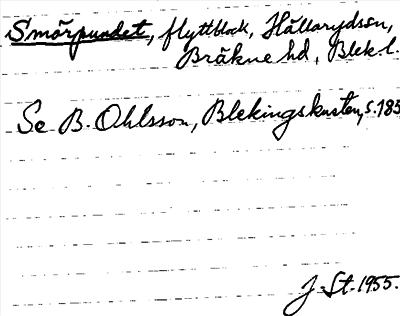 Smörpundet, flyttblock, Hällarydssn,
Bräkne hd, Blek l.
Se B. Ohlsson, Blekingskusten, s. 185
J. St. 1955.